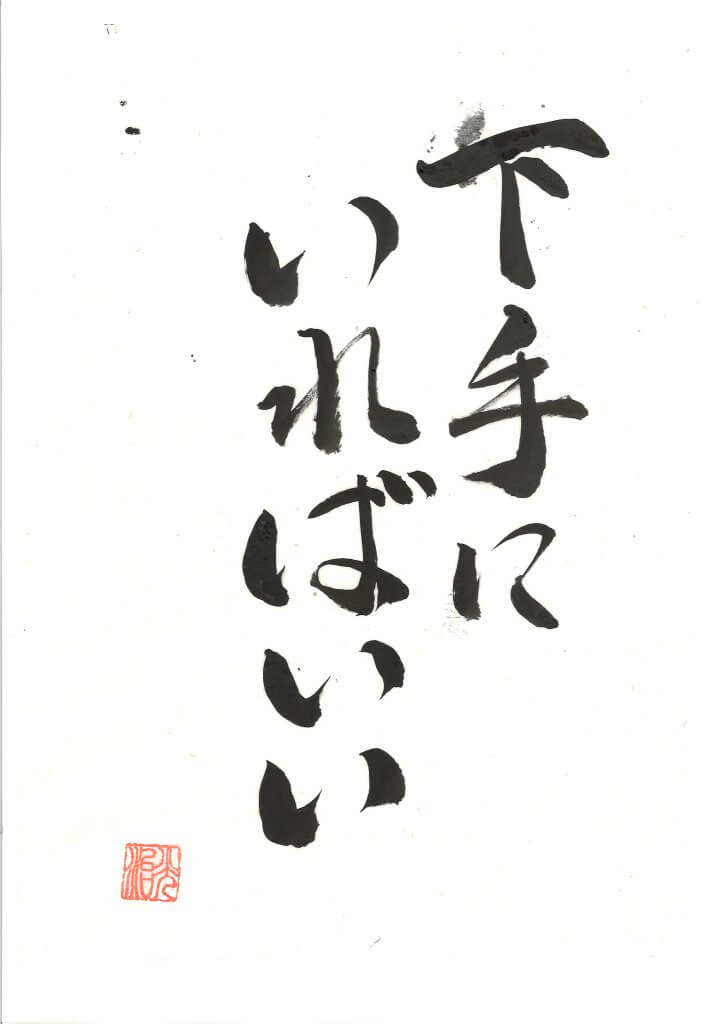 下手に
いればいい